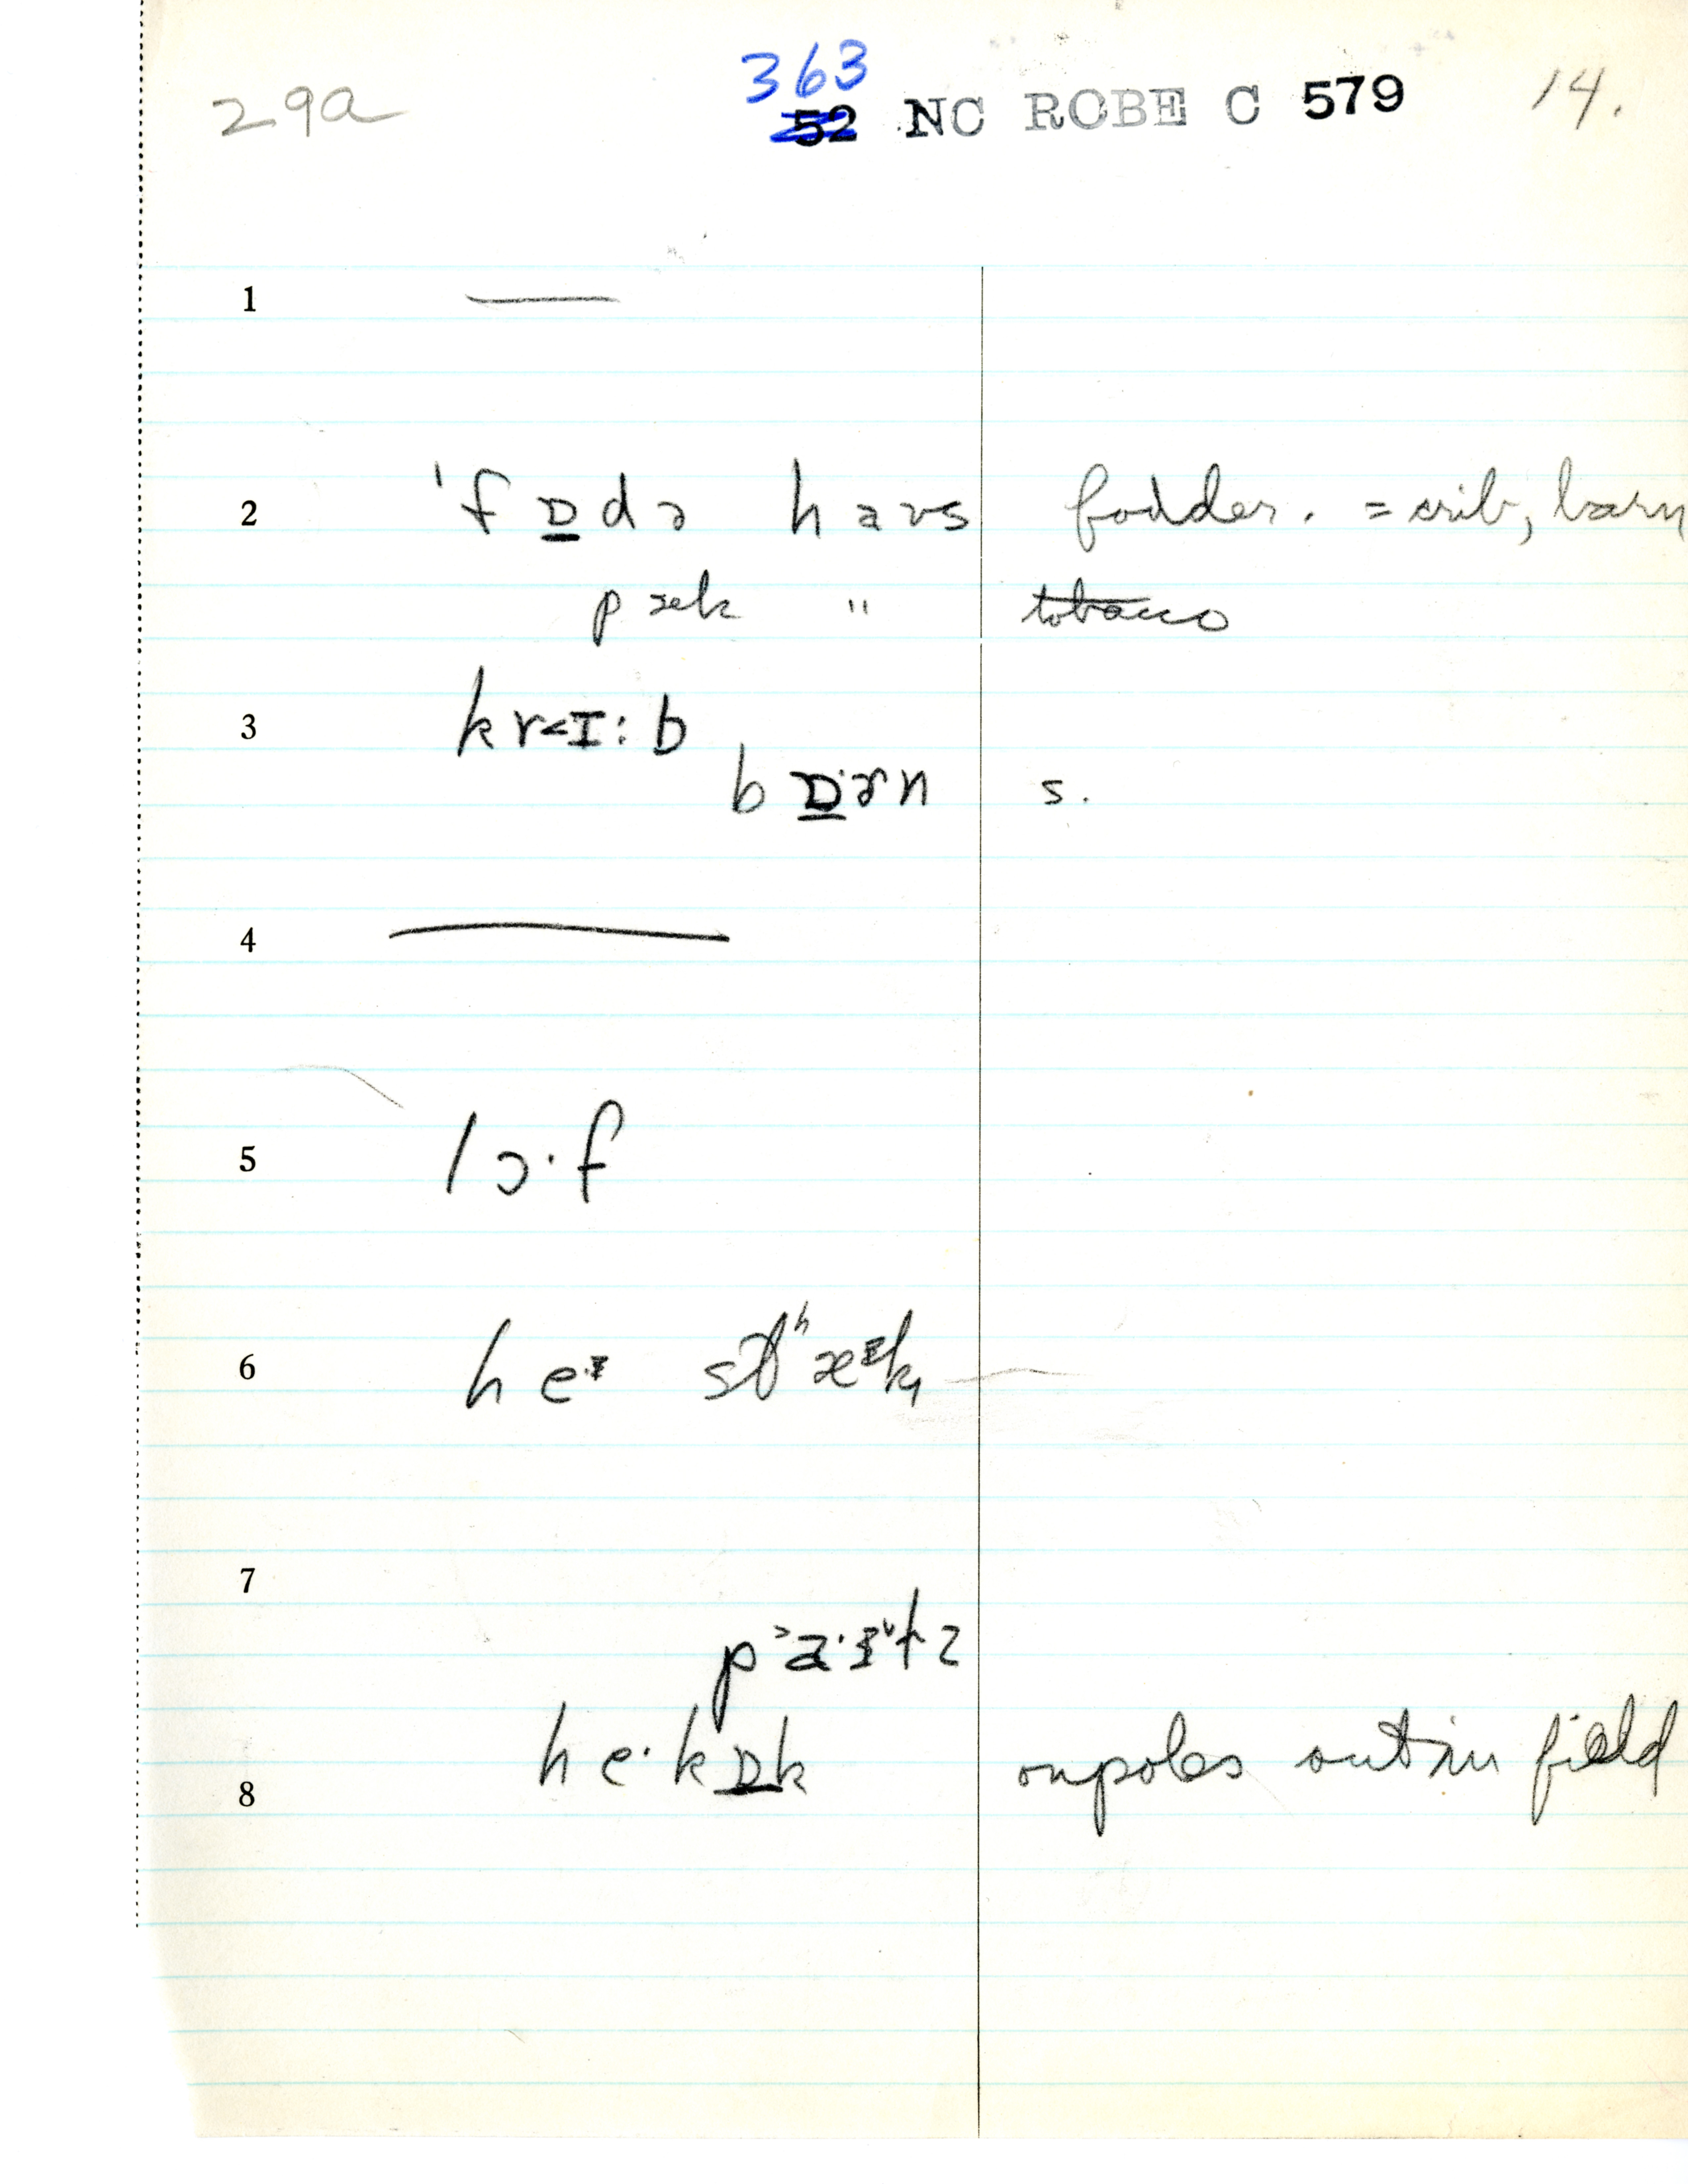 29a 363 52 NC ROBE C 579 14.
1 —
2 ˈfɒ̲də haʊs fodder. = crib, barn
pæk " tobacco
3 kr<ɪ:b
bɒ̲·ɚn s.
4 —
5 lɔ·f
6 he stʰæk
7
he·kɒ̲k on poles out in field
8